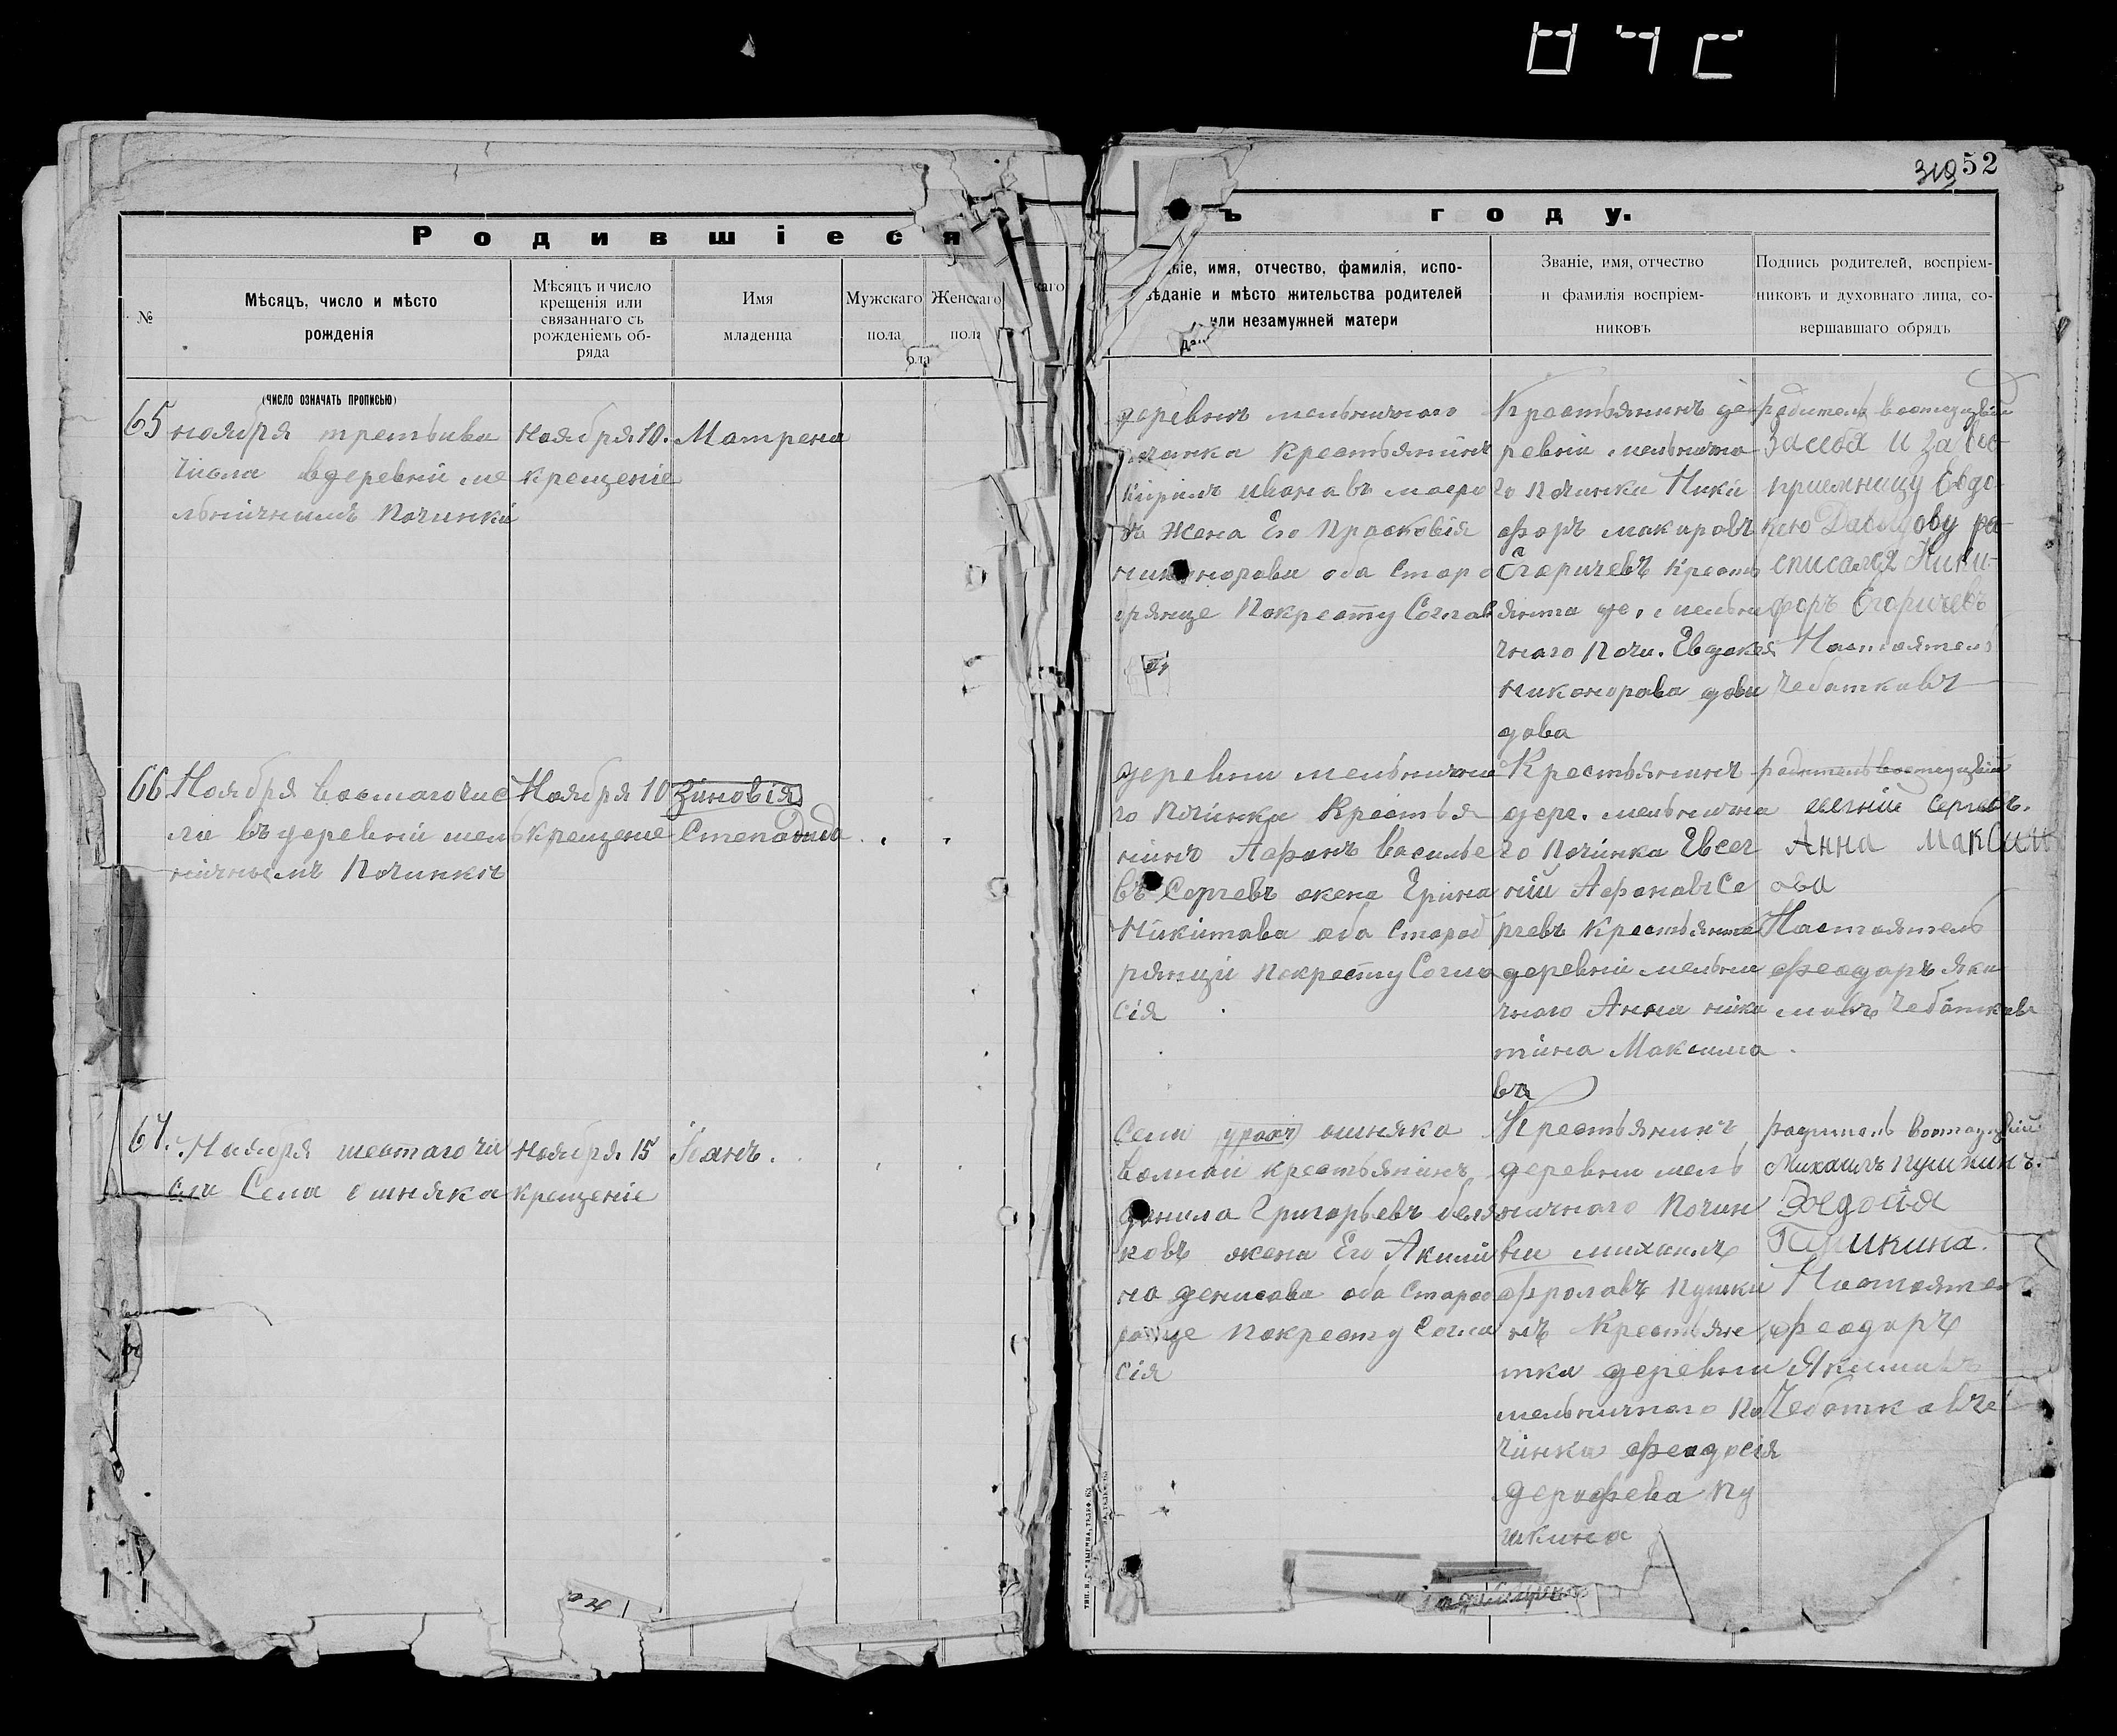 31952
Родившіеся
ъ году.
№
Мѣсяцъ, число и мѣсто
рожденія
Мѣсяцъ и число
крещенія или
связаннаго съ
рожденіемъ об-
ряда
Имя
младенца
Мужскаго
пола
Женскаго
пола
ніе, имя, отчество, фамилія, испо-
вѣданіе и мѣсто жительства родителей
или незамужней матери
Званіе, имя, отчество
и фамилія воспріем-
никовъ
Подпись родителей, воспріем-
никовъ и духовнаго лица, со-
вершавшаго обрядъ
(число означать прописью)
65
ноября третьива
числа вдеревни ме
льничнымъ Починки
Ноября 10.
крещеніе
Матрена
деревнѣ мельничнаго
починка Крестьянинъ
Кирилъ Ивановъ
жена Его Прасковія
оба Старо
Покресту Соглас
Крестьянинъ де
ревни мельнично
го Починка Ники
форъ макаровъ
Егаричевъ Кресть
янка де. мельни
чнаго Почи. Евдокея
Никонорава дави
дова
засебя и за вос-
приемницу Евдо-
кею Давыдову ра-
списался Ники-
форъ Егоричевъ
Настоятель
Чебаткавъ
66
Ноября восмагочис
ла въ деревни мель
ничнымъ Починкѣ
Ноября 10
крещение
Зиновія
Степанида
деревни мельнично
го Починка Крестья
нинъ Афанъ Василье
въ Сергевъ жена Ерина
Никитава оба Староб
рянци Покресту Согла
сія
Крестьянинъ
дере. мельнична
го Починка Евсег
ний Афанавъ Се
ргевъ Крестьянка
деревни мельни
чнаго Анна ники
тина Максима
ва
Сергевъ.
Анна Максим
ова
Настоятель
Феадаръ Яки
мавъ Чебаткавъ
67.
Ноября шестаго чи
сла Села ошняка
Ноября 15
Крещеніе
Іоанъ.
Села ошняка
волжай крестьянинъ
данила Григорьевъ беля
ковъ жена Его Акили
на денисава оба Староб
Покресту Согла
сія
Крестьянинъ
деревни мель
ничнаго Почин
ки михаилъ
Фролавъ Пушки
нъ Крестьяне
тка деревни
мельничнаго По
чинка Феадосія
дерофева Пу
шкина
Михаилъ Пушкинъ.
Федосія
Пушкина.
Настоятель
Феадаръ
Якимавъ
Чебаткавъ